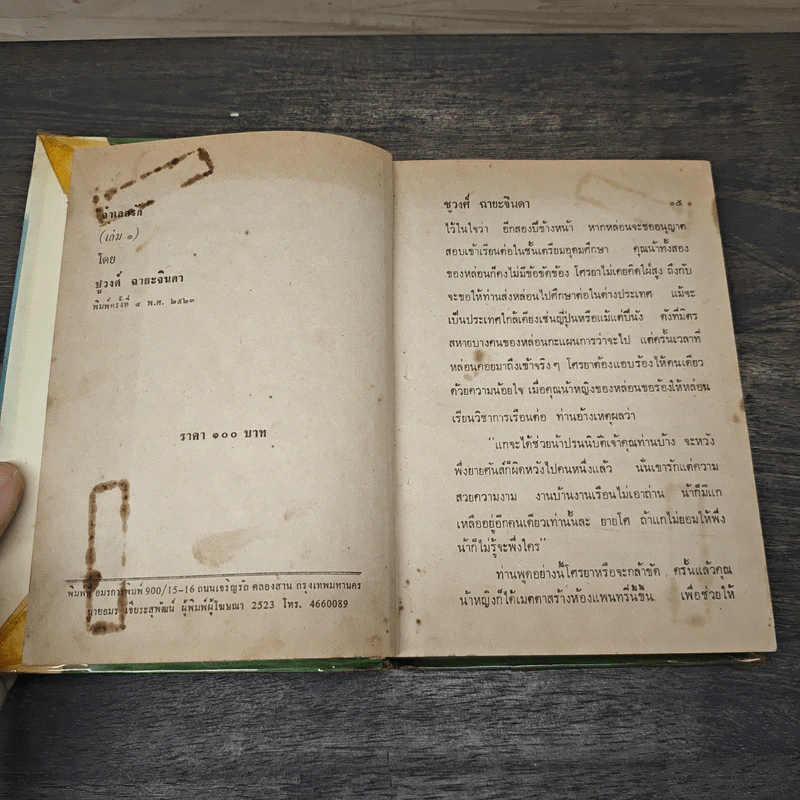 จำเลยรัก
(เล่ม ๑)
โดย
ชูวงศ์ ฉายะจินดา
พิมพ์ครั้งที่ ๔ พ.ศ. ๒๕๒๓
ราคา ๑๐๐ บาท
พิมพ์ที่ อมรการพิมพ์ 900/15-16 ถนนเจริญรัถ คลองสาน กรุงเทพมหานคร
นายอมร เจียระสุพัฒน์ ผู้พิมพ์ผู้โฆษณา 2523 โทร. 4660089
ชูวงศ์ ฉายะจินดา ๑๕
ไว้ในใจว่า อีกสองปีข้างหน้า หากหล่อนจะขออนุญาต
สอบเข้าเรียนต่อในชั้นเตรียมอุดมศึกษา คุณน้าทั้งสอง
ของหล่อนก็คงไม่มีข้อขัดข้อง โศรยาไม่เคยคิดใฝ่สูง ถึงกับ
จะขอให้ท่านส่งหล่อนไปศึกษาต่อในต่างประเทศ แม้จะ
เป็นประเทศใกล้เคียงเช่นญี่ปุ่นหรือแม้แต่ปีนัง ดังที่มิตร
สหายบางคนของหล่อนกะแผนการว่าจะไป แต่ครั้นเวลาที่
หล่อนคอยมาถึงเข้าจริงๆ โศรยาต้องแอบร้องไห้คนเดียว
ด้วยความน้อยใจ เมื่อคุณน้าหญิงของหล่อนขอร้องให้หล่อน
เรียนวิชาการเรือนต่อ ท่านอ้างเหตุผลว่า
"แกจะได้ช่วยน้าปรนนิบัติเจ้าคุณท่านบ้าง จะหวัง
พึ่งยายศันส์ก็ผิดหวังไปคนหนึ่งแล้ว นั่นเขารักแต่ความ
สวยความงาม งานบ้านงานเรือนไม่เอาถ่าน น้าก็มีแก
เหลืออยู่อีกคนเดียวเท่านั้นละ ยายโศ ถ้าแกไม่ยอมให้พึ่ง
น้าก็ไม่รู้จะพึ่งใคร"
ท่านพูดอย่างนี้โศรยาหรือจะกล้าขัด ครั้นแล้วคุณ
น้าหญิงก็ได้เมตตาสร้างห้องแพนทรี่นี้ขึ้น เพื่อช่วยให้